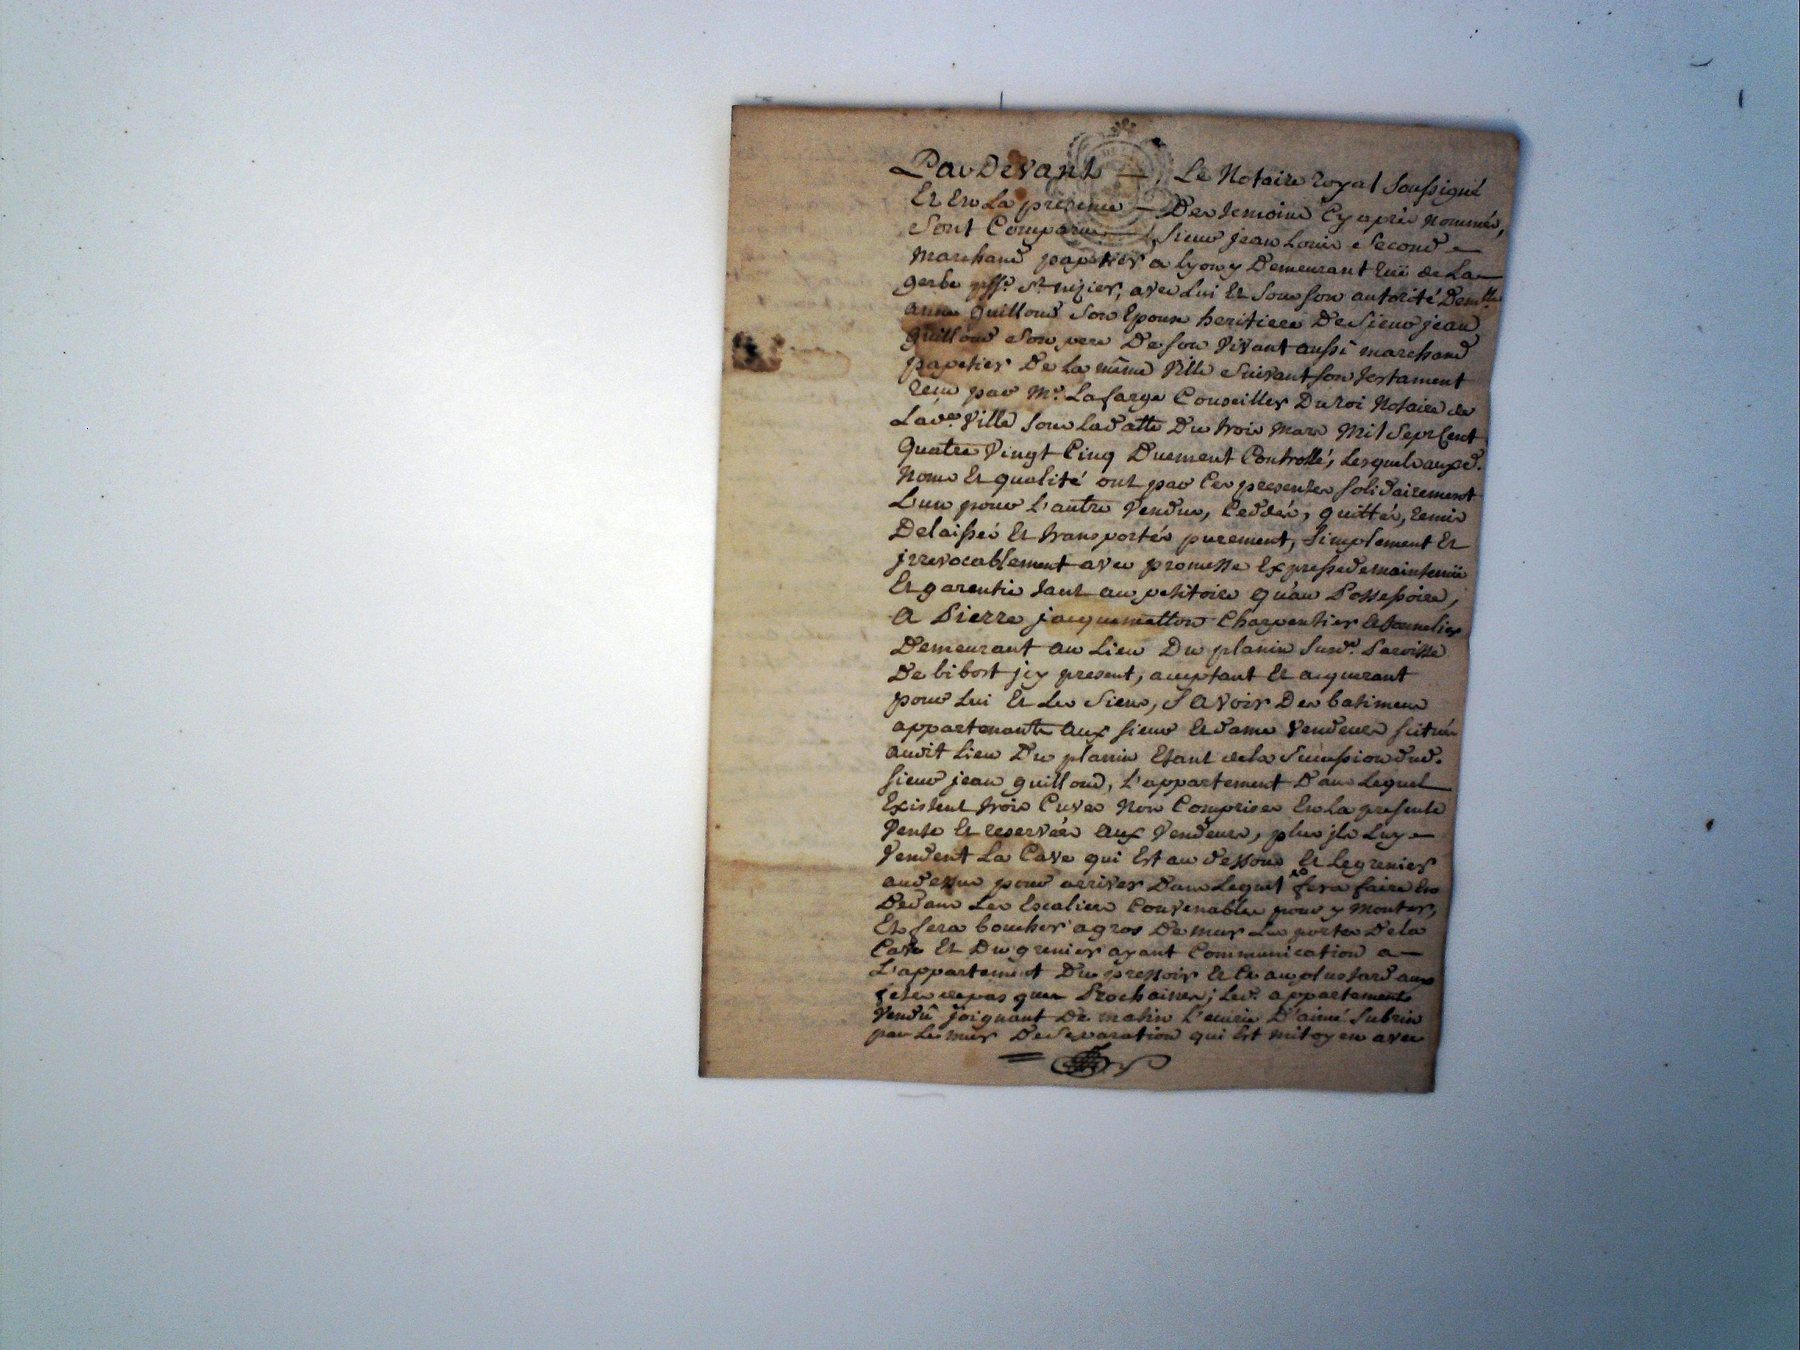 Par Devant Le Notaire royal soussigné
Et En La presence Des temoins Cy après nommés,
Sont Comparus Sieur jean Louis Second
Marchand papetier a lyon y Demeurant ruë de La
gerbe psse. St. nizier, avec Lui Et Sous son autorité Demlle
anne guilloud Son Epouse heritiere De Sieur jean
guilloud Son pere De son Vivant aussi marchand
papetier De La même Ville Suivant son testament
recu par Me. Lafarge Conseiller Du roi Notaire de
Lade. Ville Sous La datte Du trois Mars Mil Sept Cent
Quatre Vingt Cinq Duement Controllé, Lesquels auxd.
Noms Et qualité ont par Ces presentes solidairement
L'un pour L'autre Vendus, Ceddés, quittés, remis
Delaissés Et transportés purement, simplement Et
jrrevocablement avec promesse Expresse de maintenüe
Et garentie tant au petitoire qu'au Possessoire,
A Pierre jacquemetton Charpentier & tonnelier
Demeurant au Lieu Du planin Susde. Paroisse
De bibost jcy present, acceptant Et acquerant
pour Lui Et Les Siens, Savoir Des batimens
appartenants aux sieur Et dame Vendeurs scitués
audit Lieu Du planin Etant de la Succession dud.
Sieur jean guilloud, L'appartement Dans Lequel
Existent trois Cuves Non Comprises En La presente
Vente Et reservées aux Vendeurs, plus jls Luy
Vendent La Cave qui Est au dessous Et Le grenier
au dessus pour arriver Dans Lequel sera faire En
Dedans Les Escaliers Convenables pour y Monter,
Et fera boucher a gros De mur Les portes De la
Cave Et Du grenier ayant Communication a
L'appartement Du pressoir Et Ce au plus tard aux
fetes de pasques Prochaines; Led. appartements
Vendû joignant De matin L'ecurie D'aimé Subrin
par Le mur De Separation qui Est mitoyen avec